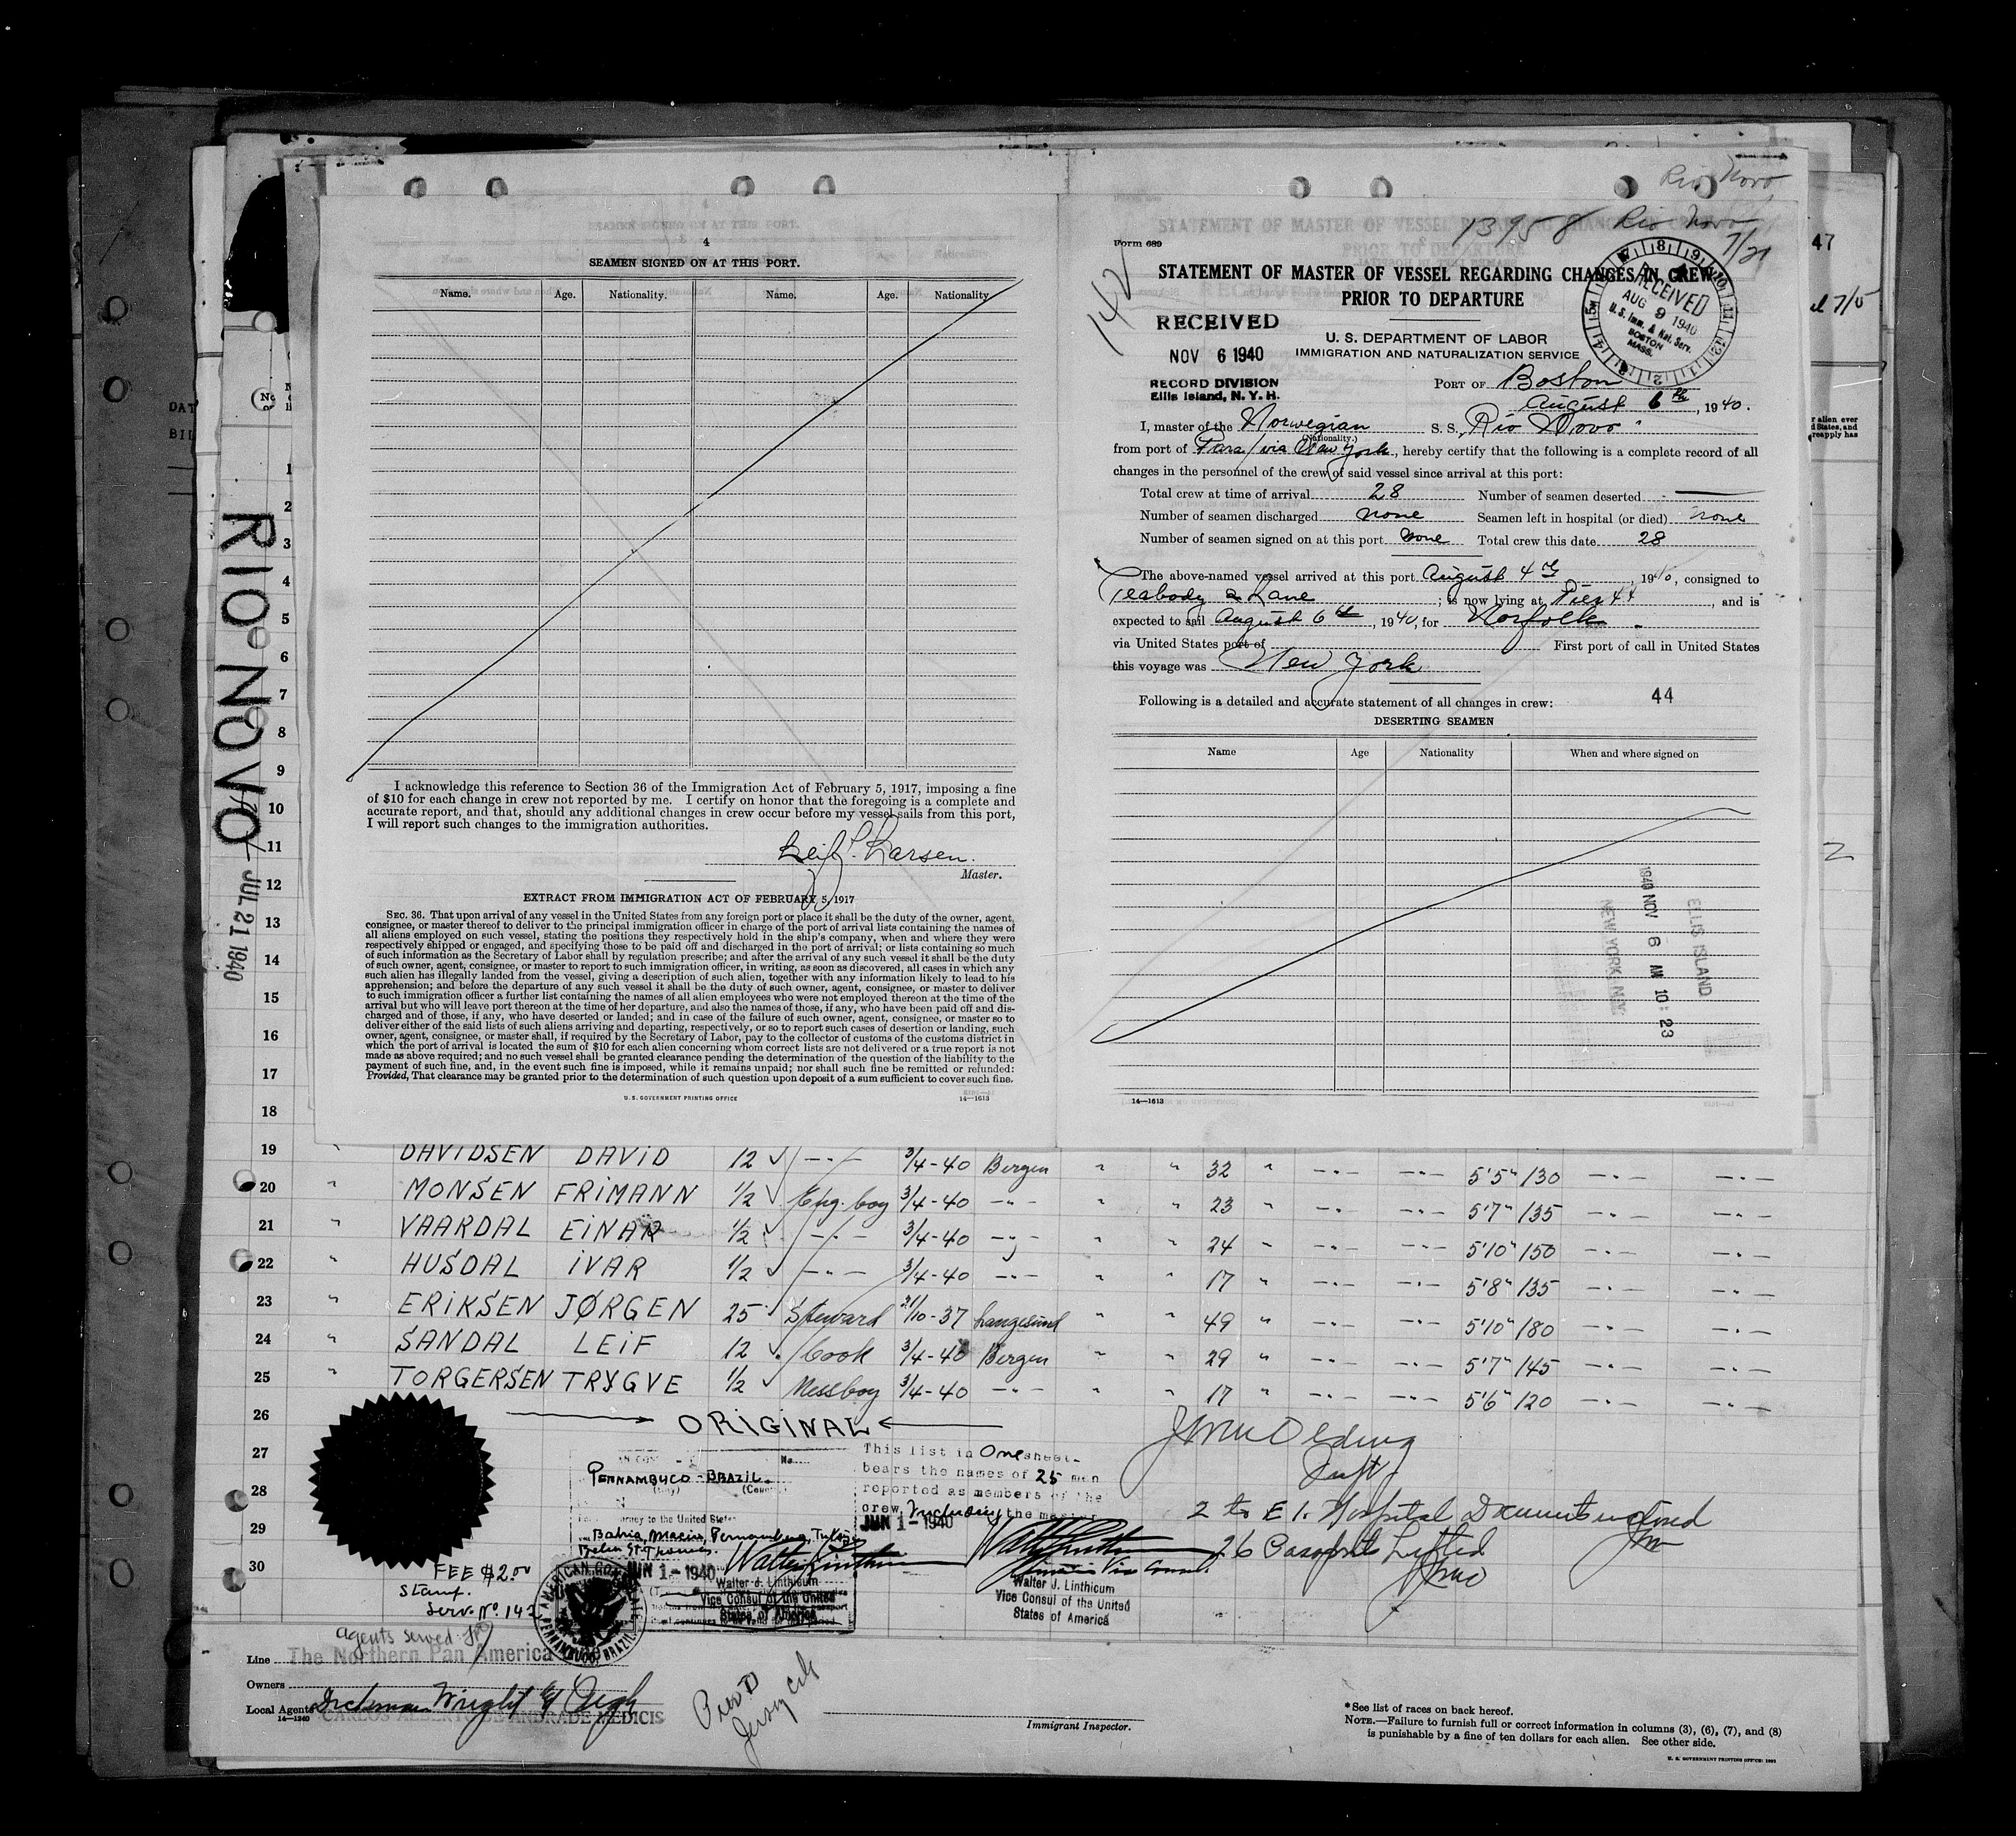 Rio Novo
13958 Rio Novo
7/21
142
4
SEAMEN SIGNED ON AT THIS PORT.
Name. Age. Nationality. Name. Age. Nationality
I acknowledge this reference to Section 36 of the Immigration Act of February 5, 1917, imposing a fine
of $10 for each change in crew not reported by me. I certify on honor that the foregoing is a complete and
accurate report, and that, should any additional changes in crew occur before my vessel sails from this port,
I will report such changes to the immigration authorities.
Leif L. Larsen.
Master.
EXTRACT FROM IMMIGRATION ACT OF FEBRUARY 5, 1917
SEC. 36. That upon arrival of any vessel in the United States from any foreign port or place it shall be the duty of the owner, agent,
consignee, or master thereof to deliver to the principal immigration officer in charge of the port of arrival lists containing the names of
all aliens employed on such vessel, stating the positions they respectively hold in the ship's company, when and where they were
respectively shipped or engaged, and specifying those to be paid off and discharged in the port of arrival; or lists containing so much
of such information as the Secretary of Labor shall by regulation prescribe; and after the arrival of any such vessel it shall be the duty
of such owner, agent, consignee, or master to report to such immigration officer, in writing, as soon as discovered, all cases in which any
such alien has illegally landed from the vessel, giving a description of such alien, together with any information likely to lead to his
apprehension; and before the departure of any such vessel it shall be the duty of such owner, agent, consignee, or master to deliver
to such immigration officer a further list containing the names of all alien employees who were not employed thereon at the time of the
arrival but who will leave port thereon at the time of her departure, and also the names of those, if any, who have been paid off and dis-
charged and of those, if any, who have deserted or landed; and in case of the failure of such owner, agent, consignee, or master so to
deliver either of the said lists of such aliens arriving and departing, respectively, or so to report such cases of desertion or landing, such
owner, agent, consignee, or master shall, if required by the Secretary of Labor, pay to the collector of customs of the customs district in
which the port of arrival is located the sum of $10 for each alien concerning whom correct lists are not delivered or a true report is not
made as above required; and no such vessel shall be granted clearance pending the determination of the question of the liability to the
payment of such fine, and, in the event such fine is imposed, while it remains unpaid; nor shall such fine be remitted or refunded:
Provided, That clearance may be granted prior to the determination of such question upon deposit of a sum sufficient to cover such fine.
U. S. GOVERNMENT PRINTING OFFICE 14—1613
Form 689
STATEMENT OF MASTER OF VESSEL REGARDING CHANGES IN CREW
PRIOR TO DEPARTURE
RECEIVED
NOV 6 1940
RECORD DIVISION
Ellis Island, N. Y. H.
U. S. DEPARTMENT OF LABOR
IMMIGRATION AND NATURALIZATION SERVICE
RECEIVED
AUG 9 1940
U. S. Imm. & Nat. Serv.
BOSTON
MASS.
PORT OF Boston
August 6th, 1940.
I, master of the Norwegian S. S. Rio Novo
(Nationality.)
from port of Para/via New York, hereby certify that the following is a complete record of all
changes in the personnel of the crew of said vessel since arrival at this port:
Total crew at time of arrival 28 Number of seamen deserted —
Number of seamen discharged none Seamen left in hospital (or died) none
Number of seamen signed on at this port none Total crew this date 28
The above-named vessel arrived at this port August 4th, 1940, consigned to
Peabody & Lane; is now lying at Pier 44, and is
expected to sail August 6th, 1940, for Norfolk
via United States port of First port of call in United States
this voyage was New York
Following is a detailed and accurate statement of all changes in crew: 44
DESERTING SEAMEN
Name Age Nationality When and where signed on
1940 NOV 6 AM 10:23
ELLIS ISLAND
NEW YORK N.Y.
14—1613
47
7/5
2
RIO NOVO
JUL 21 1940
1
2
3
4
5
6
7
8
9
10
11
12
13
14
15
16
17
18
19 " DAVIDSEN DAVID 12 -"- 3/4-40 Bergen " " 32 " -"- -"- 5'5" 130 -"- -"-
20 " MONSEN FRIMANN 1/2 Eng. boy 3/4-40 -"- " " 23 " -"- -"- 5'7" 135 -"- -"-
21 " VAARDAL EINAR 1/2 -"- 3/4-40 -"- " " 24 " -"- -"- 5'10" 150 -"- -"-
22 " HUSDAL IVAR 1/2 -"- 3/4-40 -"- " " 17 " -"- -"- 5'8" 135 -"- -"-
23 " ERIKSEN JØRGEN 25 Steward 21/10-37 Langesund " " 49 " -"- -"- 5'10" 180 -"- -"-
24 " SANDAL LEIF 12 Cook 3/4-40 Bergen " " 29 " -"- -"- 5'7" 145 -"- -"-
25 " TORGERSEN TRYGVE 1/2 Messboy 3/4-40 -"- " " 17 " -"- -"- 5'6" 120 -"- -"-
26
27
28
29
30
ORIGINAL
No.
PERNAMBUCO-BRAZIL.
(City) (Country)
journey to the United States
Bahia, Maceio, Pernambuco,
Belem St Thomas.
JUN 1 - 1940
Walter J. Linthicum
Vice Consul of the United
States of America
This list in One sheet
bears the names of 25 men
reported as members of the
crew, including the master
JUN 1 - 1940
Walter J. Linthicum
Vice Consul of the United
States of America
2 to E. I. Hospital
26 Passports Lifted
FEE $2.00
Stamp.
Serv. No. 142
AMERICAN CONSULATE
PERNAMBUCO, BRAZIL
agents served
Line The Northern Pan America
Owners
Local Agents Wright
14—1240
CARLOS ALBERTO DE ANDRADE MEDICIS
Pier D
Jersey City
Immigrant Inspector.
*See list of races on back hereof.
NOTE.—Failure to furnish full or correct information in columns (3), (6), (7), and (8)
is punishable by a fine of ten dollars for each alien. See other side.
U. S. GOVERNMENT PRINTING OFFICE